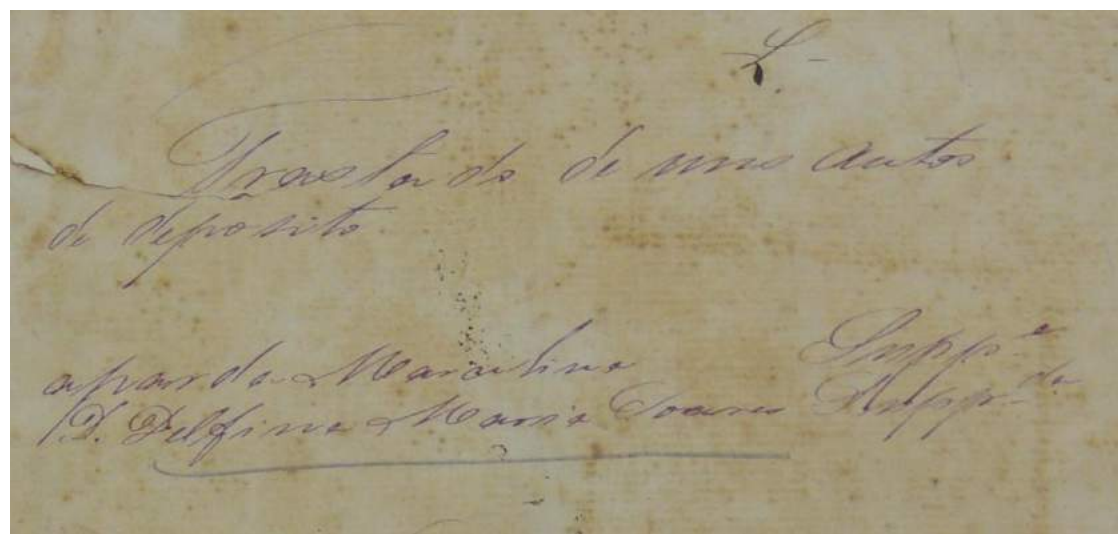 Traslado de uns autos
de deposito
a parda Marcolina Supp.e
D. Delfina Maria Soares Supp.da